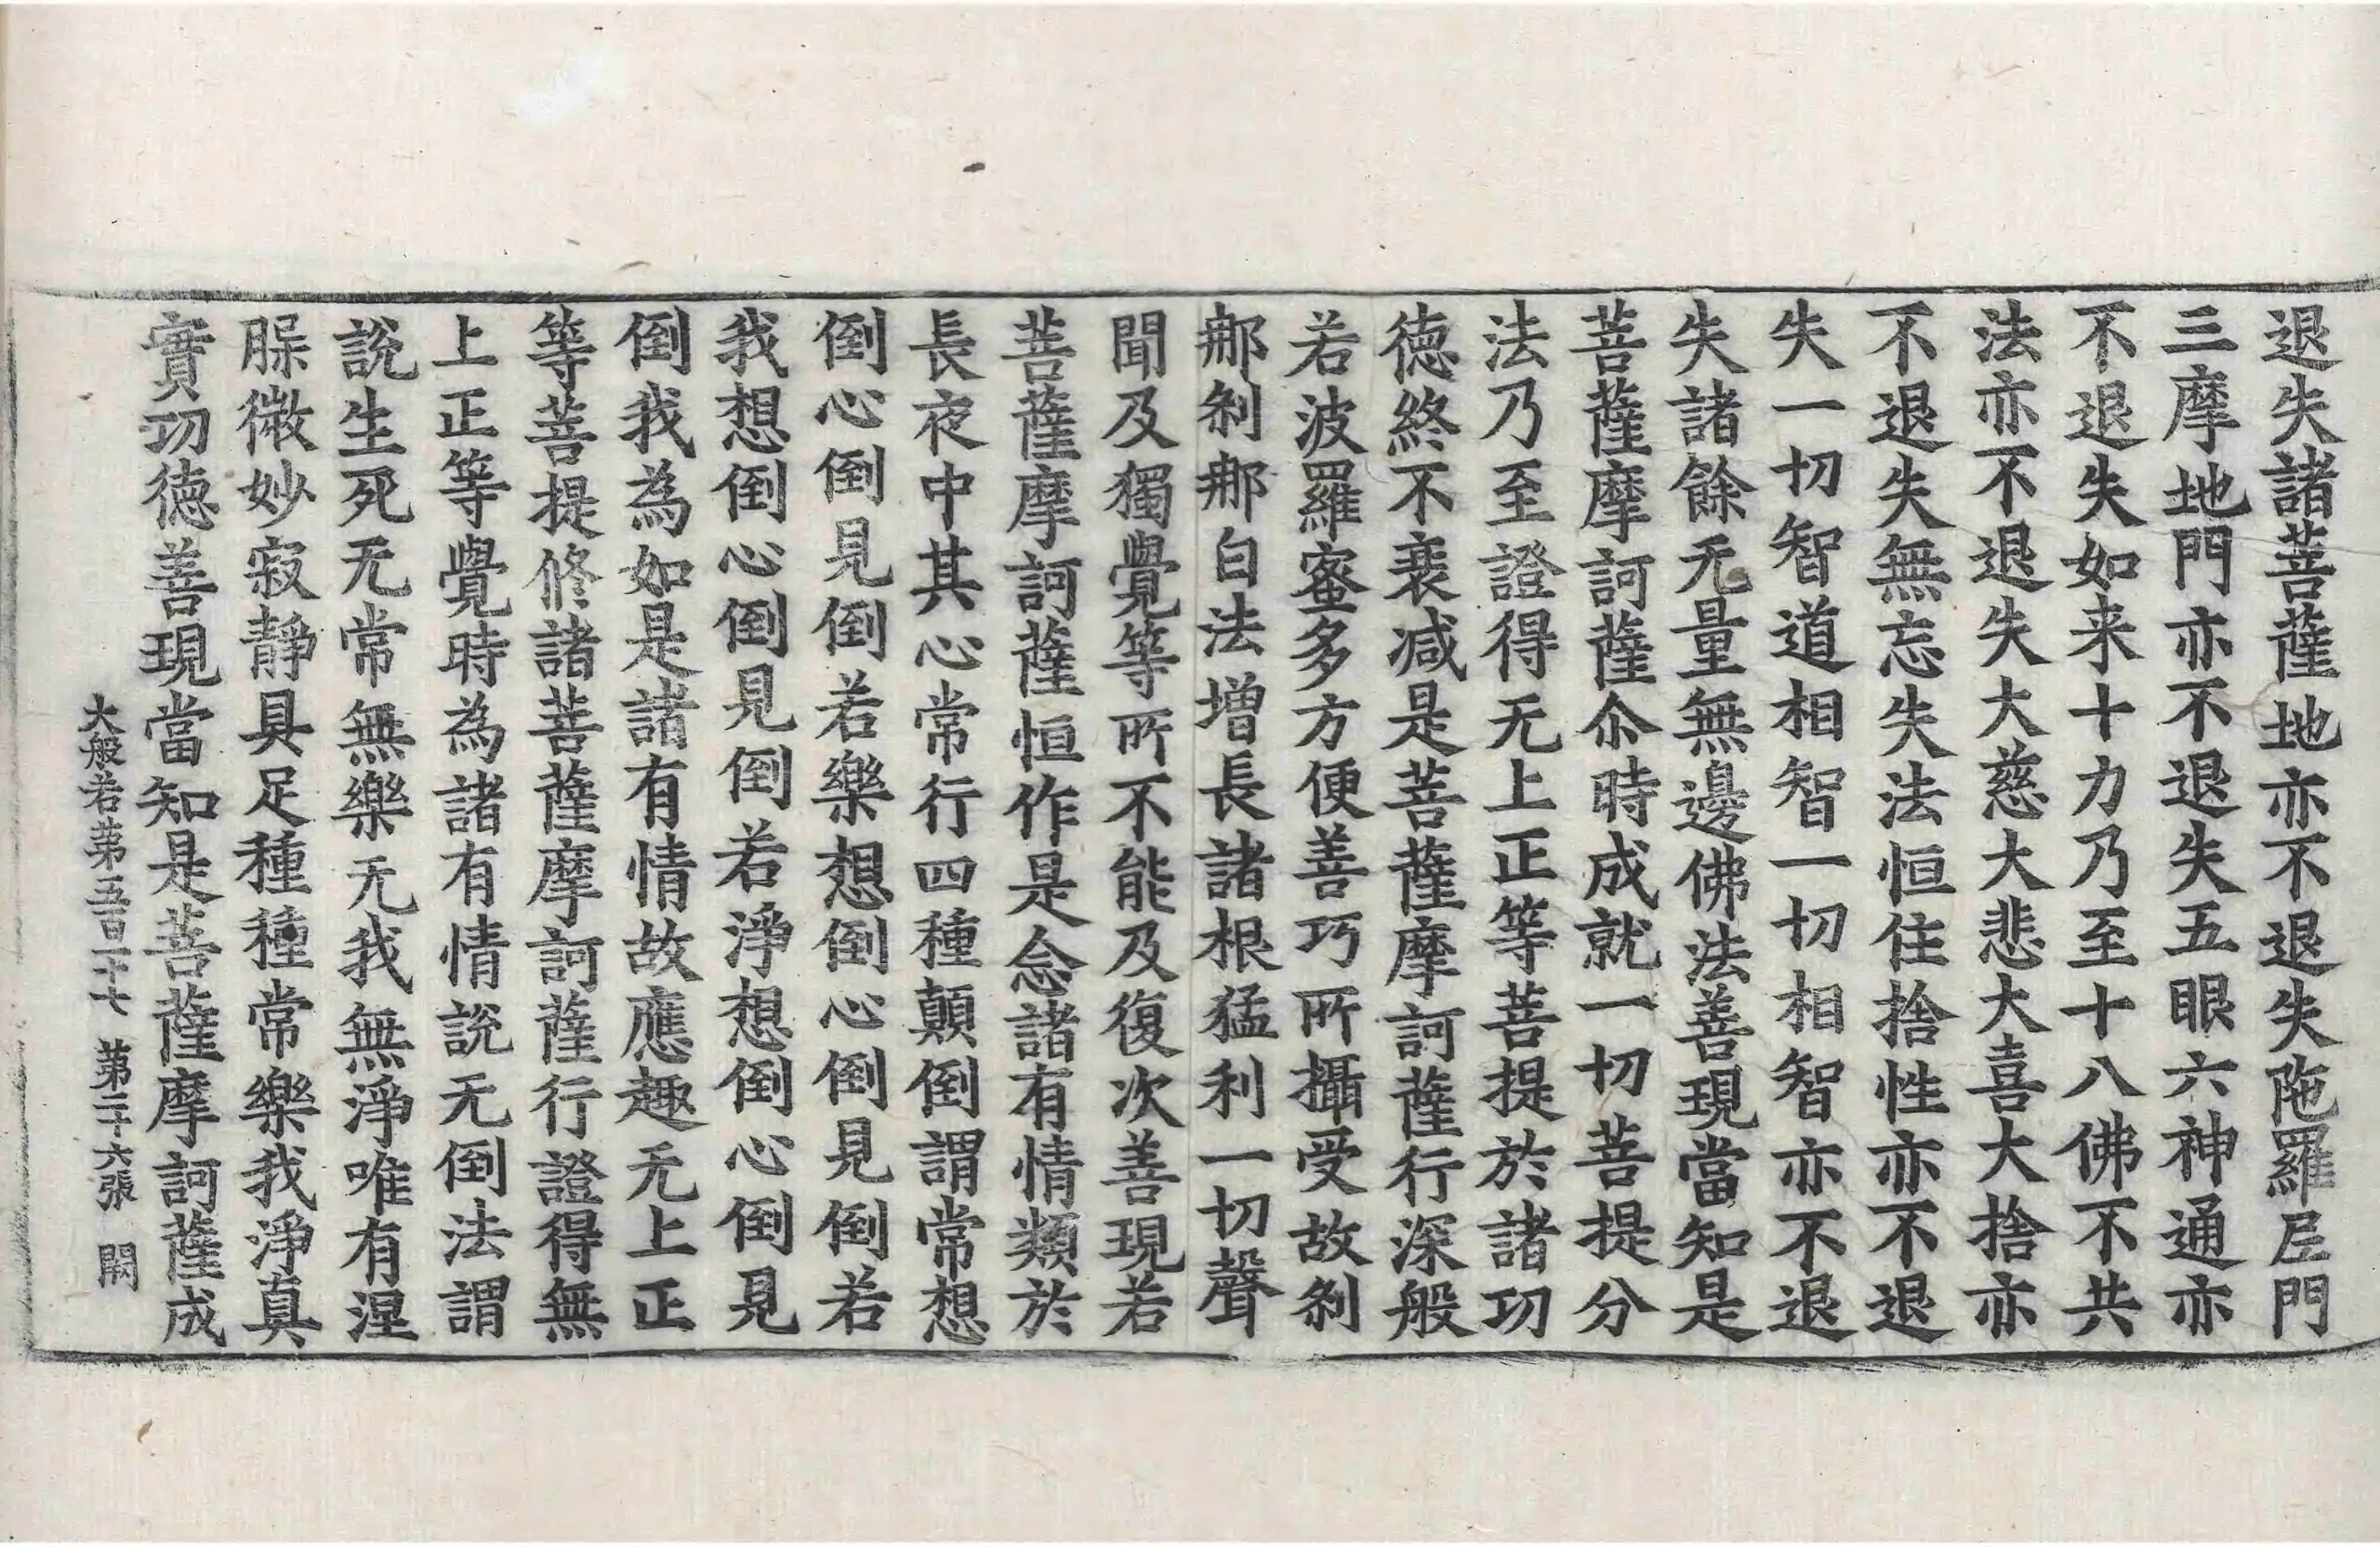 退失諸菩薩地亦不退失陁羅尼門
三摩地門亦不退失五眼六神通亦
不退失如来十力乃至十八佛不共
法亦不退失大慈大悲大喜大捨亦
不退失無忘失法恒住捨性亦不退
失一切智道相智一切相智亦不退
失諸餘无量無邊佛法善現當知是
菩薩摩訶薩尒時成就一切菩提分
法乃至證得无上正等菩提於諸功
德終不衰減是菩薩摩訶薩行深般
若波羅蜜多方便善巧所攝受故剎
那剎那白法增長諸根猛利一切聲
聞及獨覺等所不能及復次善現若
菩薩摩訶薩恒作是念諸有情類於
長夜中其心常行四種顛倒謂常想
倒心倒見倒若樂想倒心倒見倒若
我想倒心倒見倒若淨想倒心倒見
倒我為如是諸有情故應趣无上正
等菩提修諸菩薩摩訶薩行證得無
上正等覺時為諸有情說无倒法謂
說生死无常無樂无我無淨唯有涅
槃微妙寂靜具足種種常樂我淨真
實功德善現當知是菩薩摩訶薩成
大般若第五百二十七 第二十六張 闕